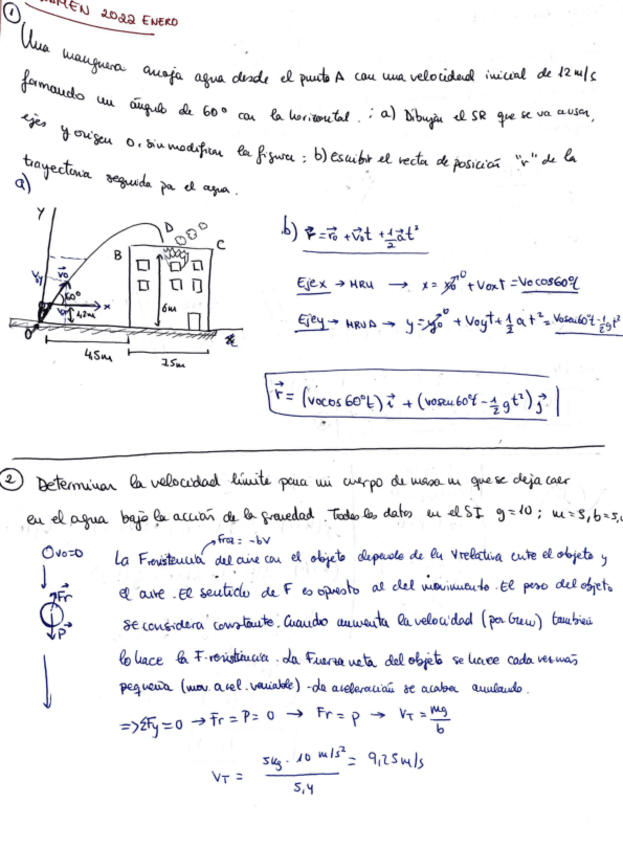 EXAMEN 2022 ENERO
① Una manguera arroja agua desde el punto A con una velocidad inicial de 12 m/s
formando un ángulo de 60º con la horizontal. : a) Dibujar el SR que se va a usar,
ejes y origen O, sin modificar la figura; b) escribir el vector de posición "r" de la
trayectoria seguida por el agua.
a)
Y
D
B
C
V₀
60º
x
1,2m
6m
O
45m
25m
b) r = r₀ + v₀t + 1/2 at²
Eje x → MRU → x = x₀⁰ + v₀xt = v₀cos60ºt
Eje y → MRUA → y = y₀⁰ + v₀yt + 1/2 at² = v₀sen60ºt - 1/2 gt²
r = (v₀cos60ºt) i + (v₀sen60ºt - 1/2 gt²) j
② Determinar la velocidad límite para un cuerpo de masa m que se deja caer
en el agua bajo la acción de la gravedad. Todos los datos en el SI g=10; m=5, b=5,
Froz = -bV
v₀=0
Fr
P
La Fresistencia del aire con el objeto depende de la Vrelativa entre el objeto y
el aire. El sentido de F es opuesto al del movimiento. El peso del objeto
se considera constante. Cuando aumenta la velocidad (por Grav) también
lo hace la F.resistencia. La Fuerza neta del objeto se hace cada vez más
pequeña (mov. acel. variable) - La aceleración se acaba anulando.
=> ΣFy = 0 → Fr = P = 0 → Fr = P → VT = mg/b
VT = 5kg · 10 m/s² / 5,4 = 9,25 m/s